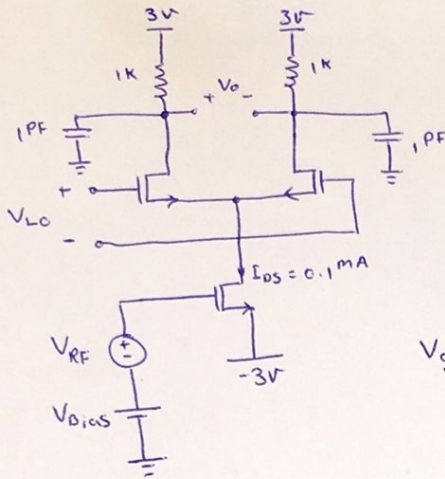 3V 3V
1K 1K
+ Vo -
1PF 1PF
+
VLO
-
IDS = 0.1 mA
VRF + -
-3V
VBias